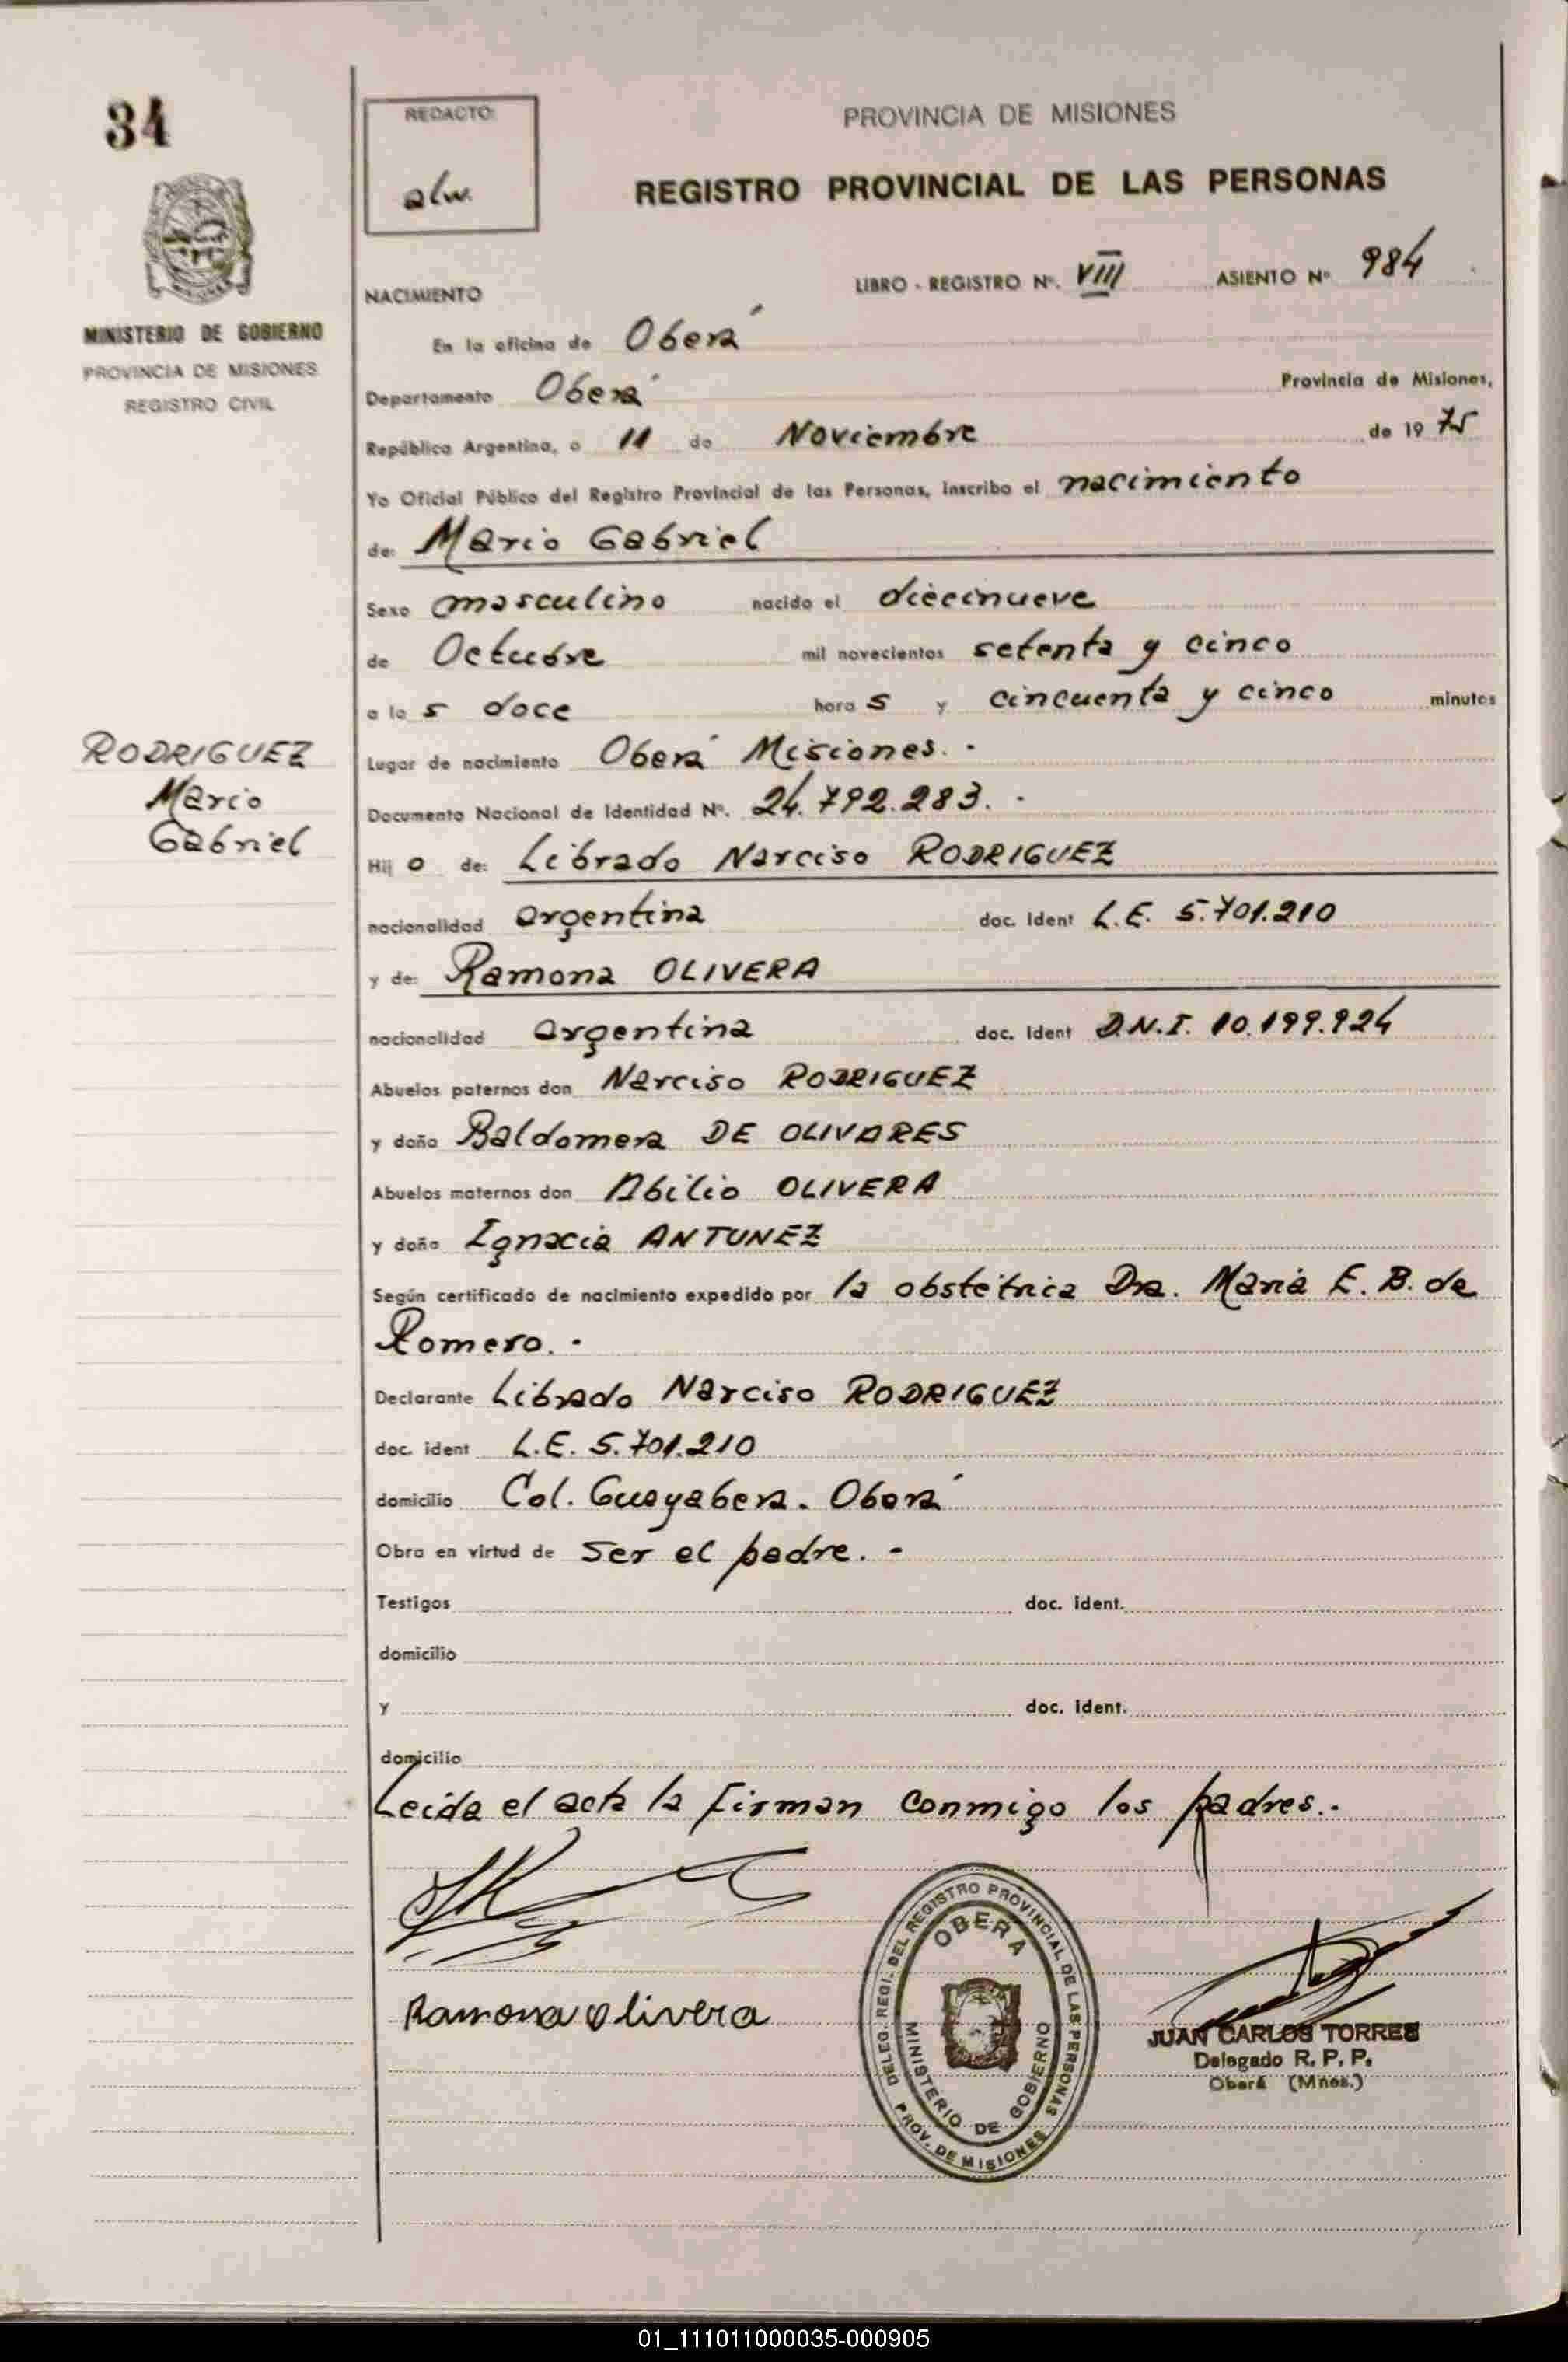 34
MINISTERIO DE GOBIERNO
PROVINCIA DE MISIONES
REGISTRO CIVIL
RODRIGUEZ
Mario
Gabriel
REDACTO:
alw.
PROVINCIA DE MISIONES
REGISTRO PROVINCIAL DE LAS PERSONAS
NACIMIENTO LIBRO - REGISTRO Nº. VIII ASIENTO Nº 984
En la oficina de Oberá
Departamento Oberá Provincia de Misiones,
República Argentina, a 11 de Noviembre de 1975
Yo Oficial Público del Registro Provincial de las Personas, inscribo el nacimiento
de: Mario Gabriel
Sexo masculino nacido el diecinueve
de Octubre mil novecientos setenta y cinco
a las doce horas y cincuenta y cinco minutos
Lugar de nacimiento Oberá Misiones. -
Documento Nacional de Identidad Nº. 24.792.283. -
Hijo de: Librado Narciso RODRIGUEZ
nacionalidad argentina doc. ident L.E. 5.701.210
y de: Ramona OLIVERA
nacionalidad argentina doc. ident D.N.I. 10.199.924
Abuelos paternos don Narciso RODRIGUEZ
y doña Baldomera DE OLIVARES
Abuelos maternos don Abilio OLIVERA
y doña Ignacia ANTUNEZ
Según certificado de nacimiento expedido por la obstétrica Dra. María E. B. de
Romero. -
Declarante Librado Narciso RODRIGUEZ
doc. ident L.E. 5.701.210
domicilio Col. Guayabera. Oberá
Obra en virtud de ser el padre. -
Testigos doc. ident.
domicilio
y doc. ident.
domicilio
Leída el acta la firman conmigo los padres.-
Ramona Olivera
DELEG. REGI. DEL REGISTRO PROVINCIAL DE LAS PERSONAS
PROV. DE MISIONES
OBERA
MINISTERIO DE GOBIERNO
JUAN CARLOS TORRES
Delegado R. P. P.
Oberá (Mnes.)
01_111011000035-000905